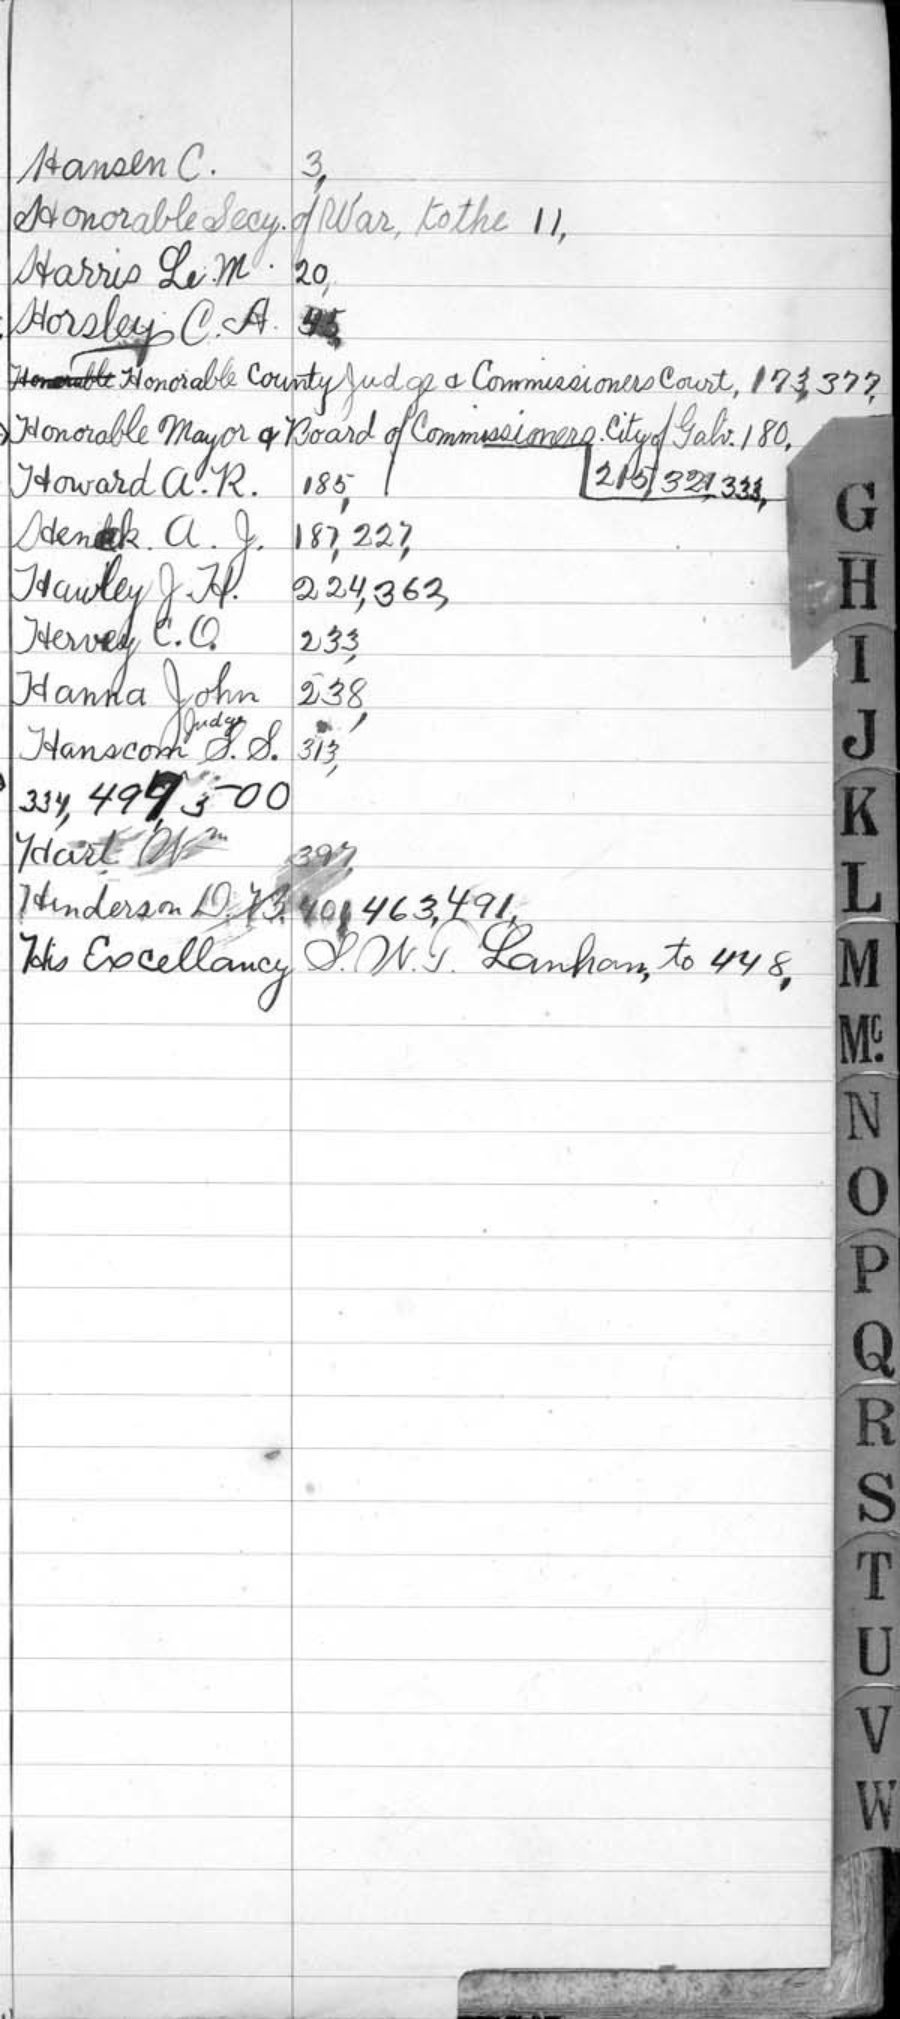 Hansen C. 3,
Honorable Secy. of War, to the 11,
Harris Le. M. 20,
Horsley C. A. 45,
Honorable Honorable County Judge & Commissioners Court, 173, 377,
Honorable Mayor & Board of Commissioners. City of Galv. 180,
215, 321, 333,
Howard A. R. 185,
A. J. 187, 227,
Hawley J. H. 224, 363,
Hervey C. O. 233,
Hanna John 238,
Judge
Hanscom S. S. 313,
334, 497, 500
Hart Wm 397,
Henderson D. B. 401, 463, 491,
His Excellancy S. W. T. Lanham, to 448,
G
H
I
J
K
L
M
Mc.
N
O
P
Q
R
S
T
U
V
W